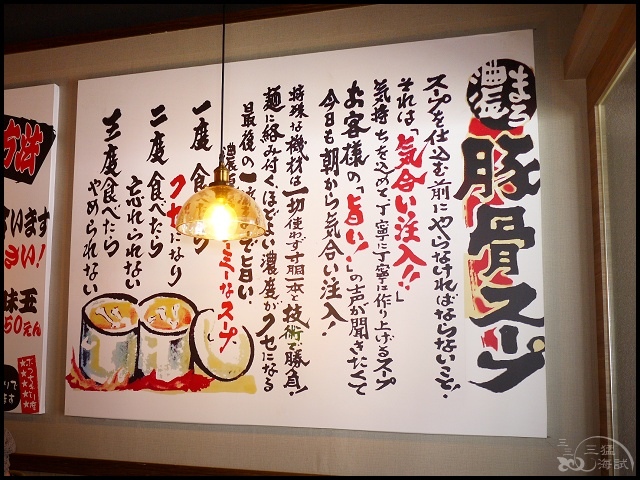 濃 まろ
豚骨スープ
スープを仕込む前にやらなければならないこと、
それは「気合い注入!!」
気持ちを込めて丁寧に丁寧に作り上げるスープ
お客様の「旨い!」の声が聞きたくて
今日も朝から気合い注入!
特殊な機材は一切使わず寸胴一本と技術で勝負!
麺に絡み付くほどよい濃度がクセになる
最後の一
で旨い、
濃
ミーなスープ
一度食
クセになり
二度食べたら
忘れられない
三度食べたら
やめられない
います
さい!
味玉
50えん
三猛
海試